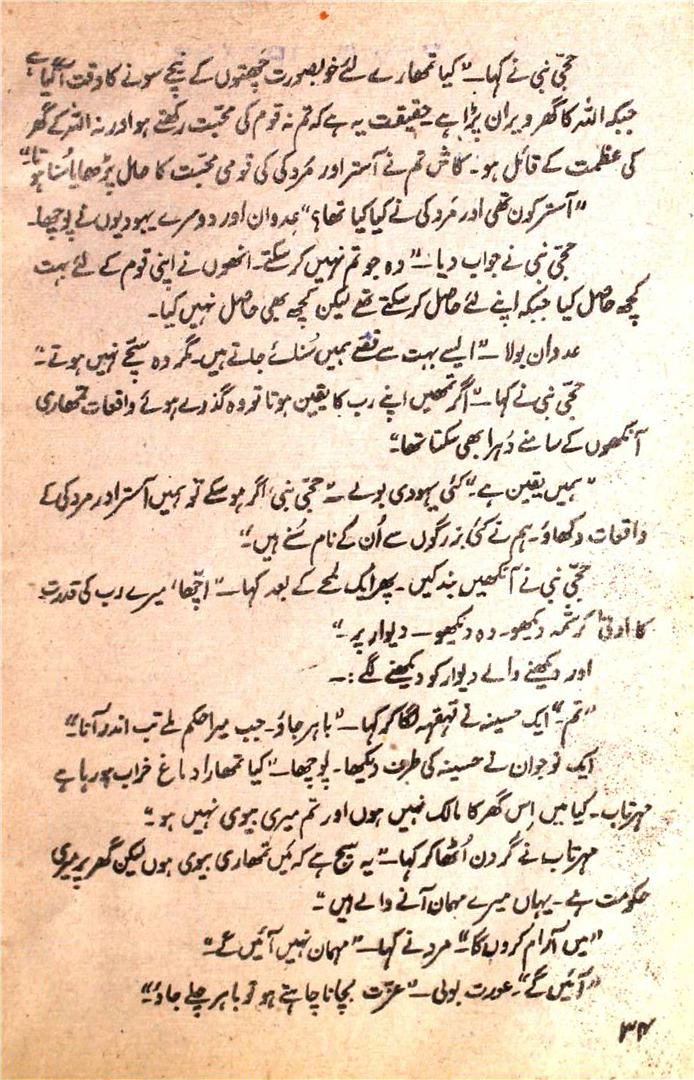 حجّی نبی نے کہا۔ ”کیا تمھارے لئے خوبصورت چھتوں کے نیچے سونے کا وقت آگیا ہے
جبکہ اللہ کا گھر ویران پڑا ہے۔ حقیقت یہ ہے کہ تم نہ قوم کی محبّت رکھتے ہو اور نہ اللہ کے گھر
کی عظمت کے قائل ہو۔ کاش تم نے آستر اور مُردکی کی قومی محبّت کا حال پڑھا یا سُنا ہوتا۔“
”آستر کون تھی اور مَردکی نے کیا کیا تھا؟“ عِدوان اور دوسرے یہودیوں نے پوچھا۔
حجّی نبی نے جواب دیا۔ ”وہ جو تم نہیں کر سکتے۔ انھوں نے اپنی قوم کے لئے بہت
کچھ حاصل کیا جبکہ اپنے لئے حاصل کر سکتے تھے لیکن کچھ بھی حاصل نہیں کیا۔
عدوان بولا۔ ”ایسے بہت سے قصّے ہمیں سُنائے جاتے ہیں۔ مگر وہ سچّے نہیں ہوتے۔“
حجّی نبی نے کہا۔ ”اگر تمھیں اپنے رب کا یقین ہوتا تو وہ گذرے ہوئے واقعات تمھاری
آنکھوں کے سامنے دُہرا بھی سکتا تھا۔“
”ہمیں یقین ہے۔“ کئی یہودی بولے۔ ”حجّی نبی، اگر ہو سکے تو ہمیں آستر اور مردکی کے
واقعات دکھاؤ۔ ہم نے کئی بزرگوں سے اُن کے نام سُنے ہیں۔“
حجّی نبی نے آنکھیں بند کیں۔ پھر ایک لمحے کے بعد کہا۔ ”اچّھا، میرے رب کی قدرت
کا ادنیٰ کرشمہ دیکھو۔ وہ دیکھو۔ دیوار پر۔“
اور دیکھنے والے دیوار کو دیکھنے لگے :۔
”تم۔“ ایک حسینہ نے قہقہہ لگا کر کہا۔ ”باہر جاؤ۔ جب میرا حکم ملے تب اندر آنا۔“
ایک نوجوان نے حسینہ کی طرف دیکھا۔ پوچھا۔ ”کیا تمھارا دماغ خراب ہو رہا ہے
مہرتاب۔ کیا میں اِس گھر کا مالک نہیں ہوں اور تم میری بیوی نہیں ہو۔“
مہرتاب نے گردن اُٹھا کر کہا۔ ”یہ سچ ہے کہ میں تمھاری بیوی ہوں لیکن گھر پر میری
حکومت ہے۔ یہاں میرے مہمان آنے والے ہیں۔“
”میں آرام کروں گا۔“ مرد نے کہا۔ ”مہمان نہیں آئیں گے۔“
”آئیں گے۔“ عورت بولی۔ ”عزّت بچانا چاہتے ہو تو باہر چلے جاؤ۔“
۳۴